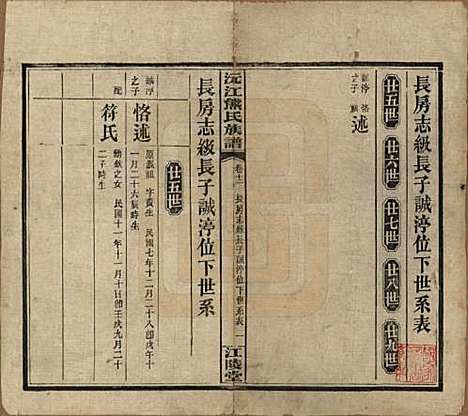 長房志級長子誠渟位下世系表
廿五世 廿六世 廿七世 廿八世 廿九世
誠渟之子 恪述
沅江熊氏族譜
卷十二
長房志級長子誠渟位下世系表
江陵堂
長房志級長子誠渟位下世系
廿五世
誠渟之子
恪述
民國七年十二月二十八卽戊午十
一月二十六辰時生
配
符氏
之女 民國十一年十一月十日卽壬戌九月二十
二子時生